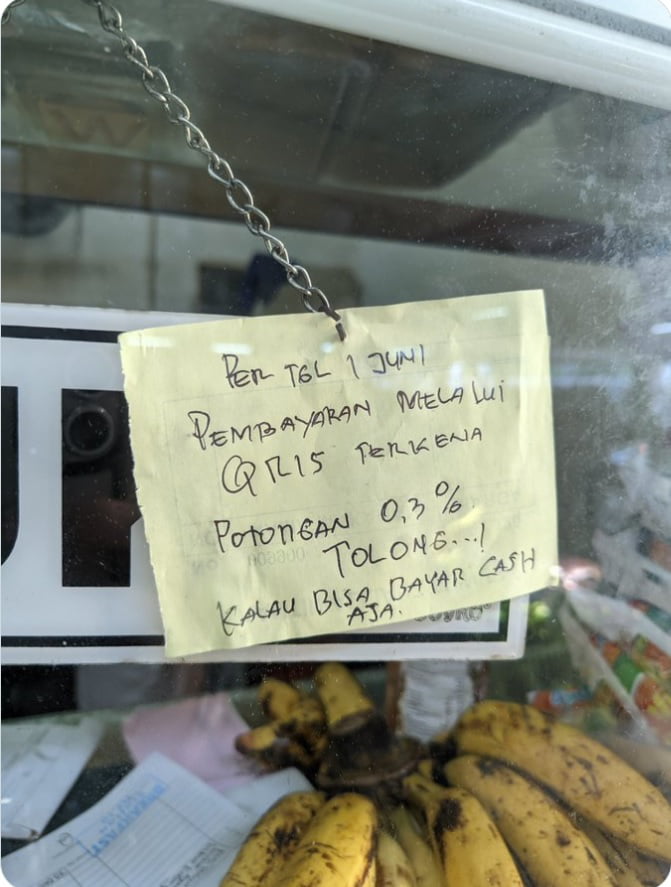 PER TGL 1 JUNI
PEMBAYARAN MELALUI
QRIS TERKENA
POTONGAN 0,3%.
TOLONG...!
KALAU BISA BAYAR CASH
AJA.